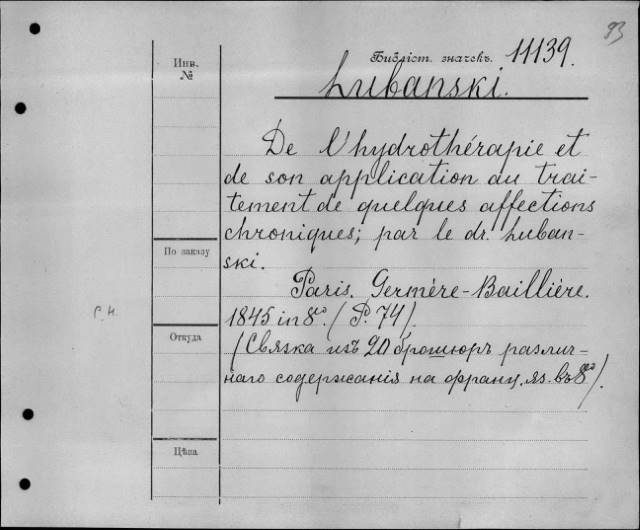 93
Инв.
№
Библіот. значекъ. 11139.
Lubanski.
De l'hydrothérapie et
de son application au trai-
tement de quelques affections
chroniques; par le dr. Luban-
ski.
По заказу
Paris. Germére-Baillière.
1845 in 8º. (P. 74).
Откуда
(Связка изъ 20 брошюръ различ-
наго содержанія на франц. яз. въ 8º).
Цѣна